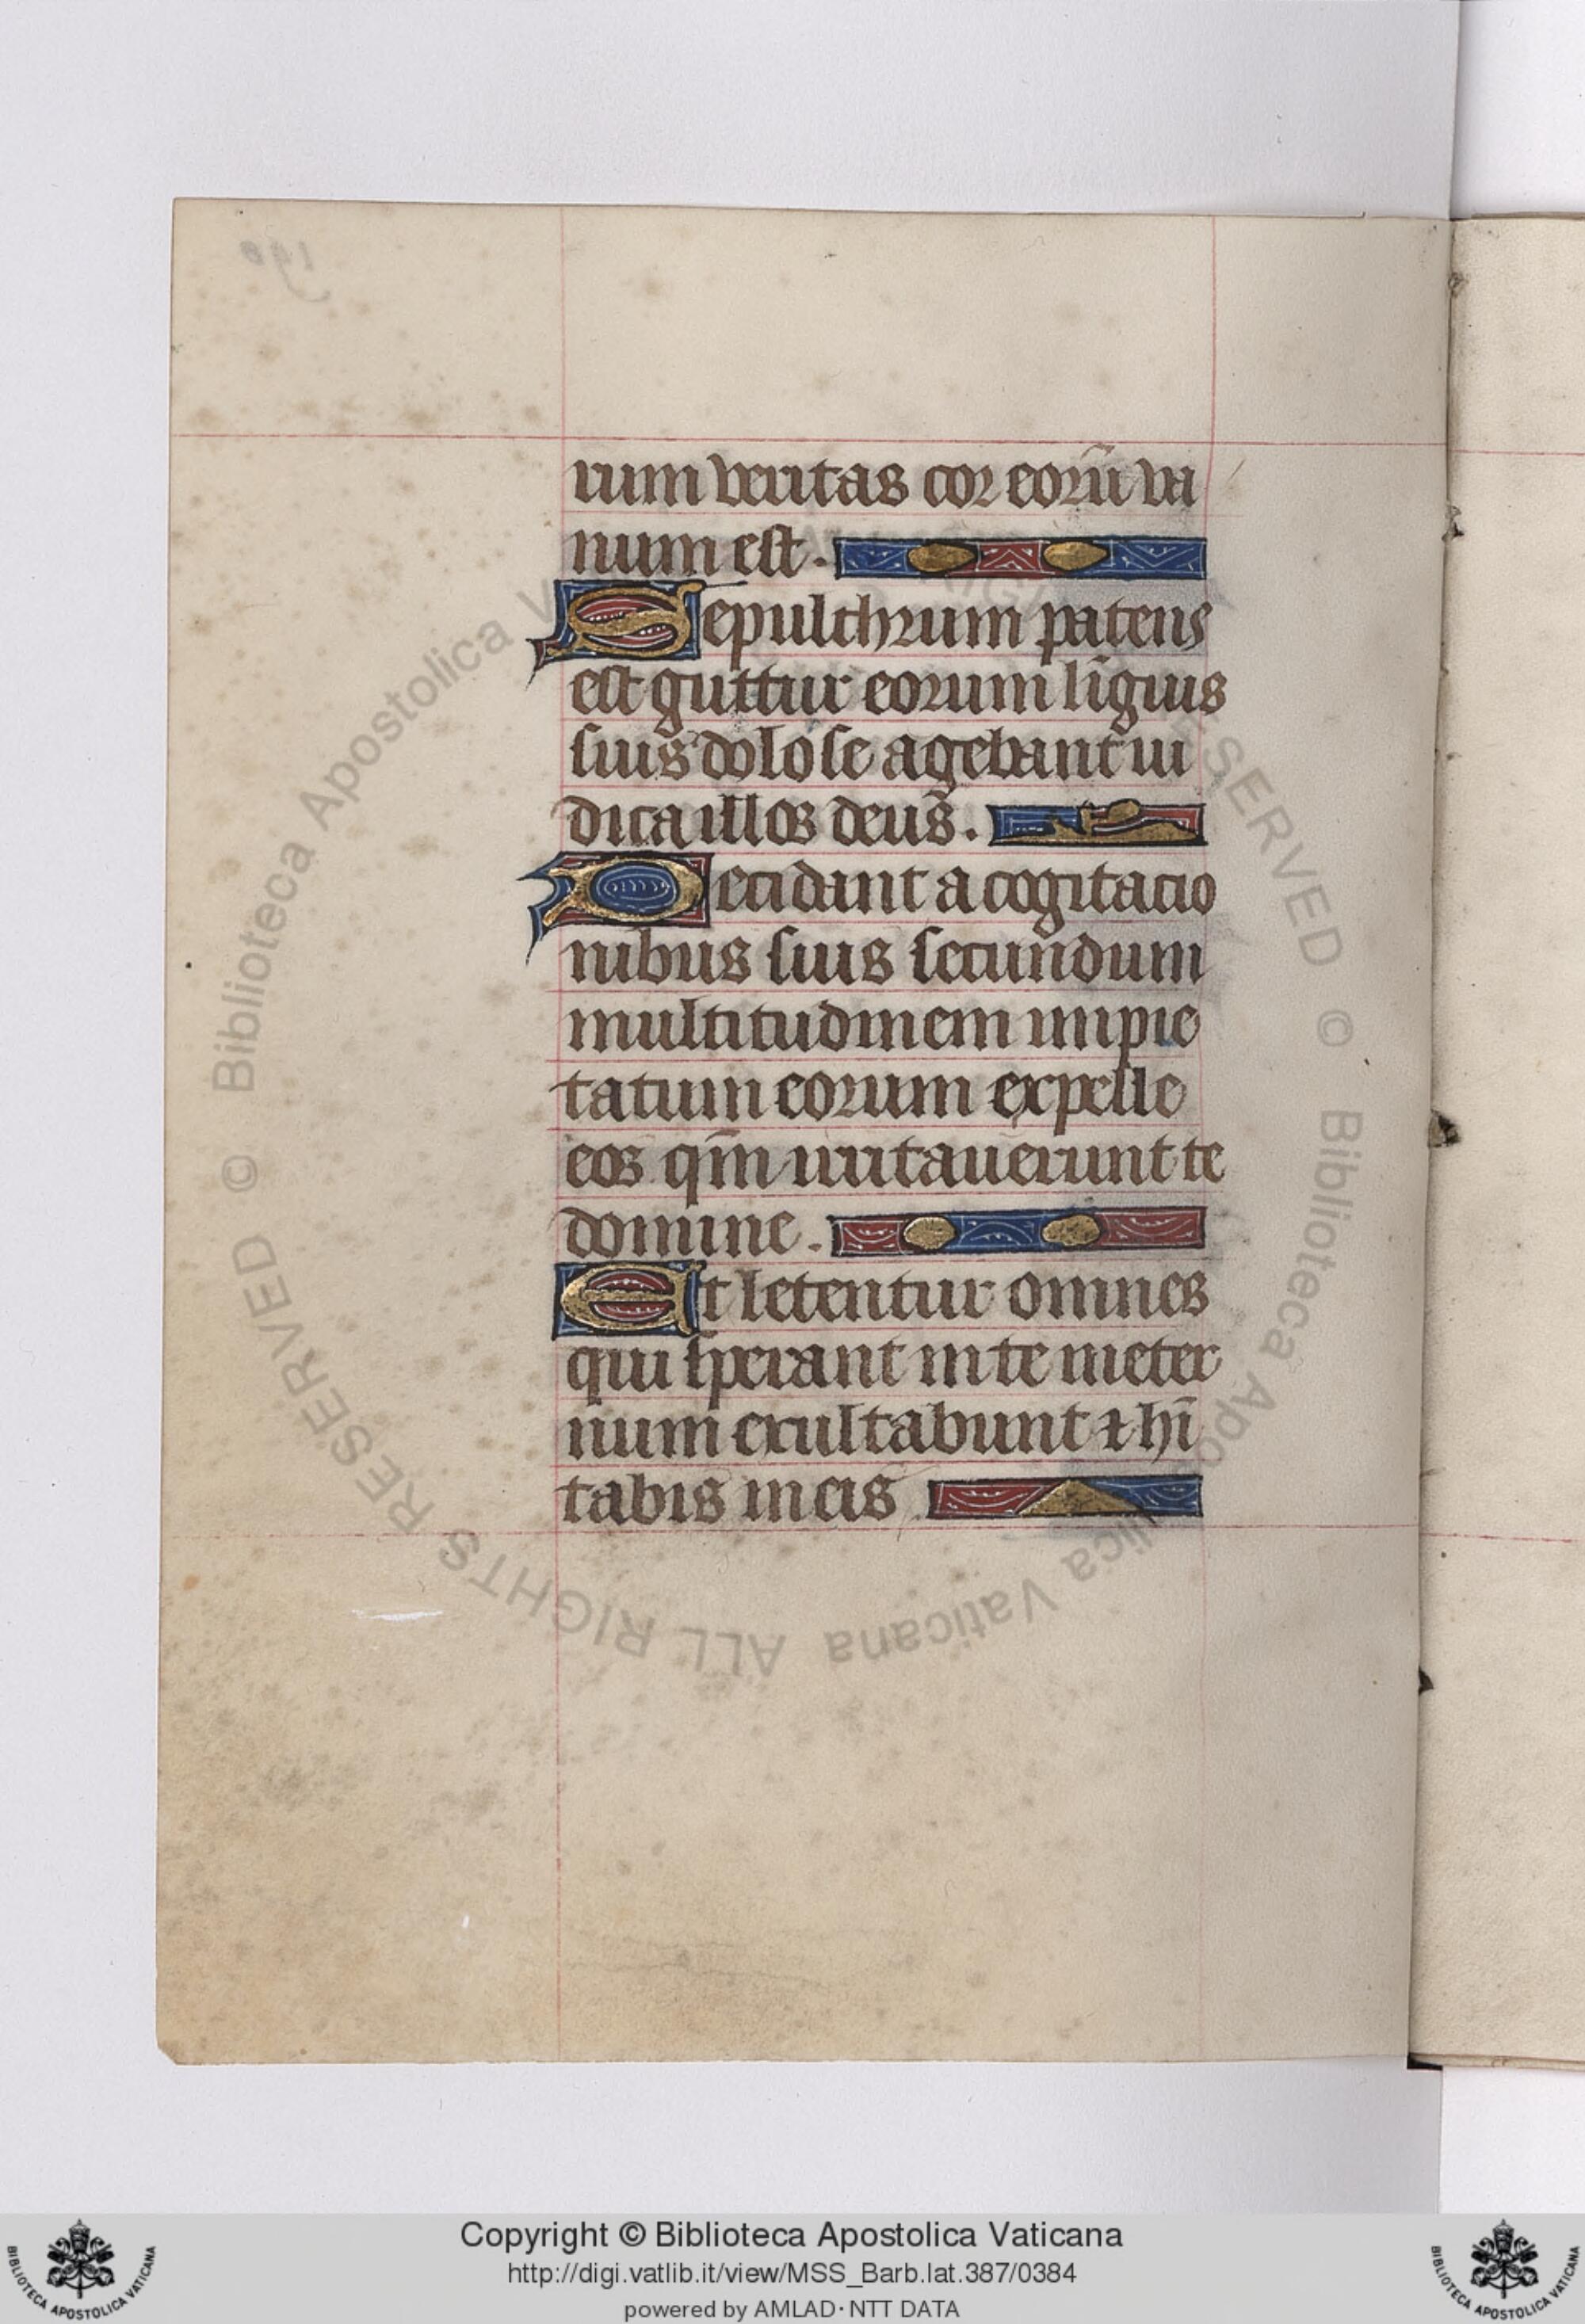 rum veritas cor eorũ va
num est.
Sepulchrum patens
est guttur eorum lĩguis
suis dolose agebant iu
dica illos deus.
Decidant a cogitacio
nibus suis secundum
multitudinem impie
tatum eorum expelle
eos qm̃ irritauerunt te
domine.
Et letentur omnes
qui sperant in te in eter
num exultabunt ⁊ hĩ
tabis in eis
© Biblioteca Apostolica Vaticana ALL RIGHTS RESERVED © Biblioteca Apostolica Vaticana ALL RIGHTS RESERVED
Copyright © Biblioteca Apostolica Vaticana
http://digi.vatlib.it/view/MSS_Barb.lat.387/0384
powered by AMLAD · NTT DATA
BIBLIOTECA APOSTOLICA VATICANA
BIBLIOTECA APOSTOLICA VATICANA